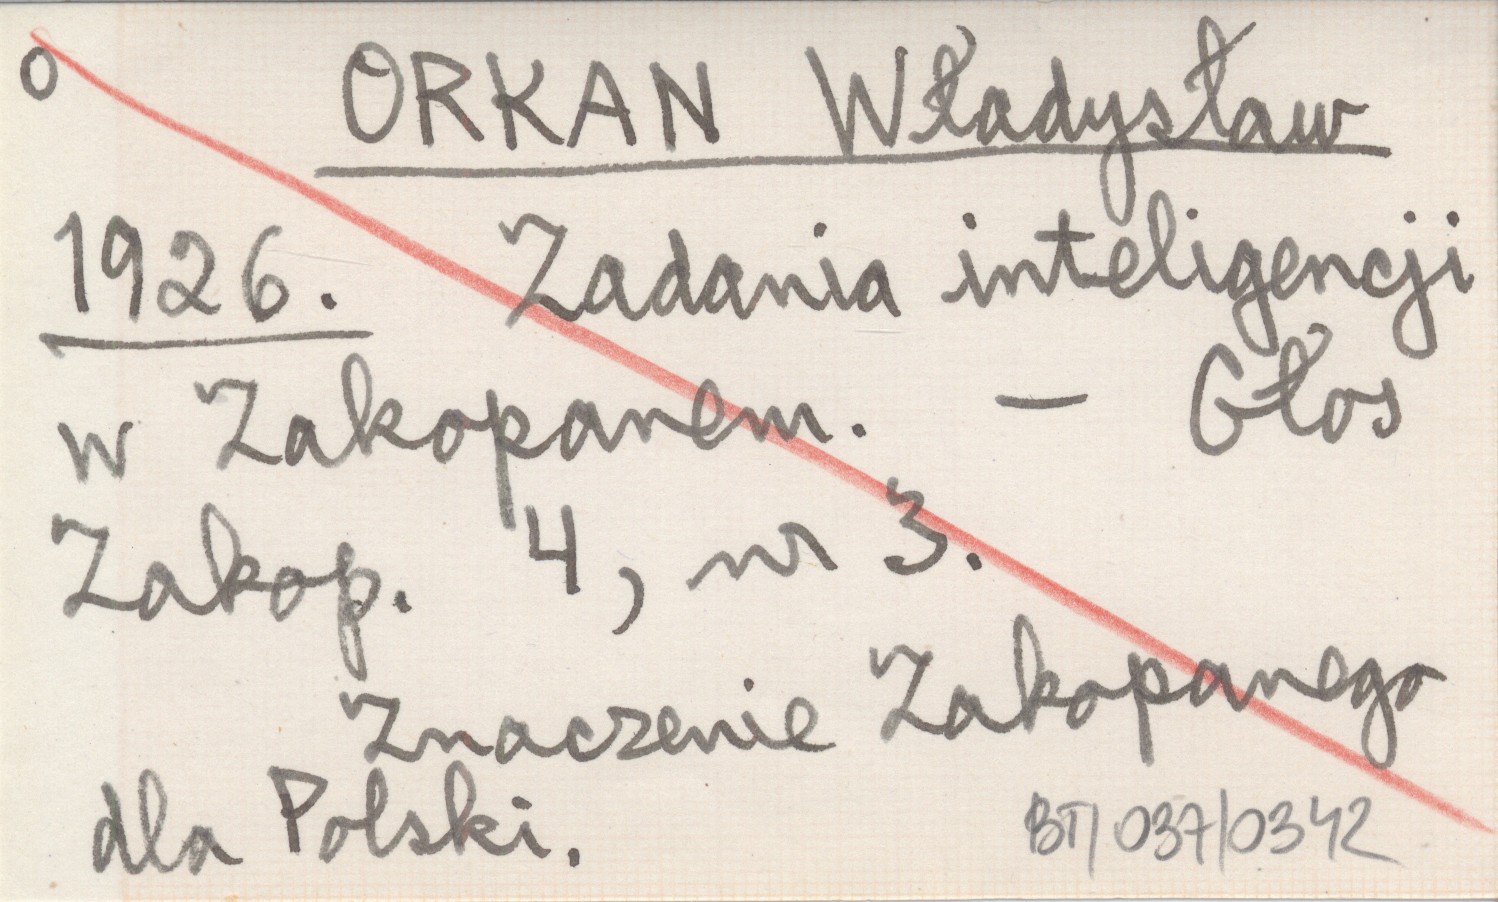 O ORKAN Władysław
1926. Zadania inteligencji
w Zakopanem. — Głos
Zakop. 4, nr 3.
Znaczenie Zakopanego
dla Polski.
BT/037/0342